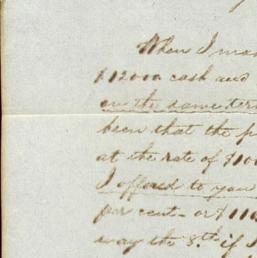 When I
$12000 cash and
on the same
been that the
at the rate of $10
I offered to you
per cent - or $11
way the 8th if